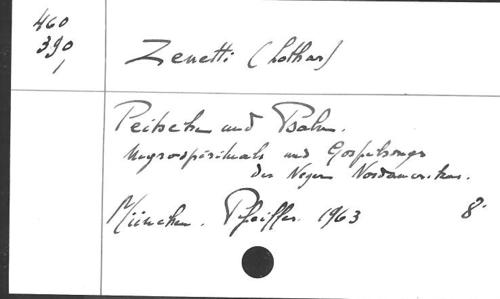 460
390
1
Zenetti (Lothar)
Peitsche und Psalm.
Negrospirituals und Gospelsongs
der Neger Nordamerikas.
München. Pfeiffer. 1963 8°